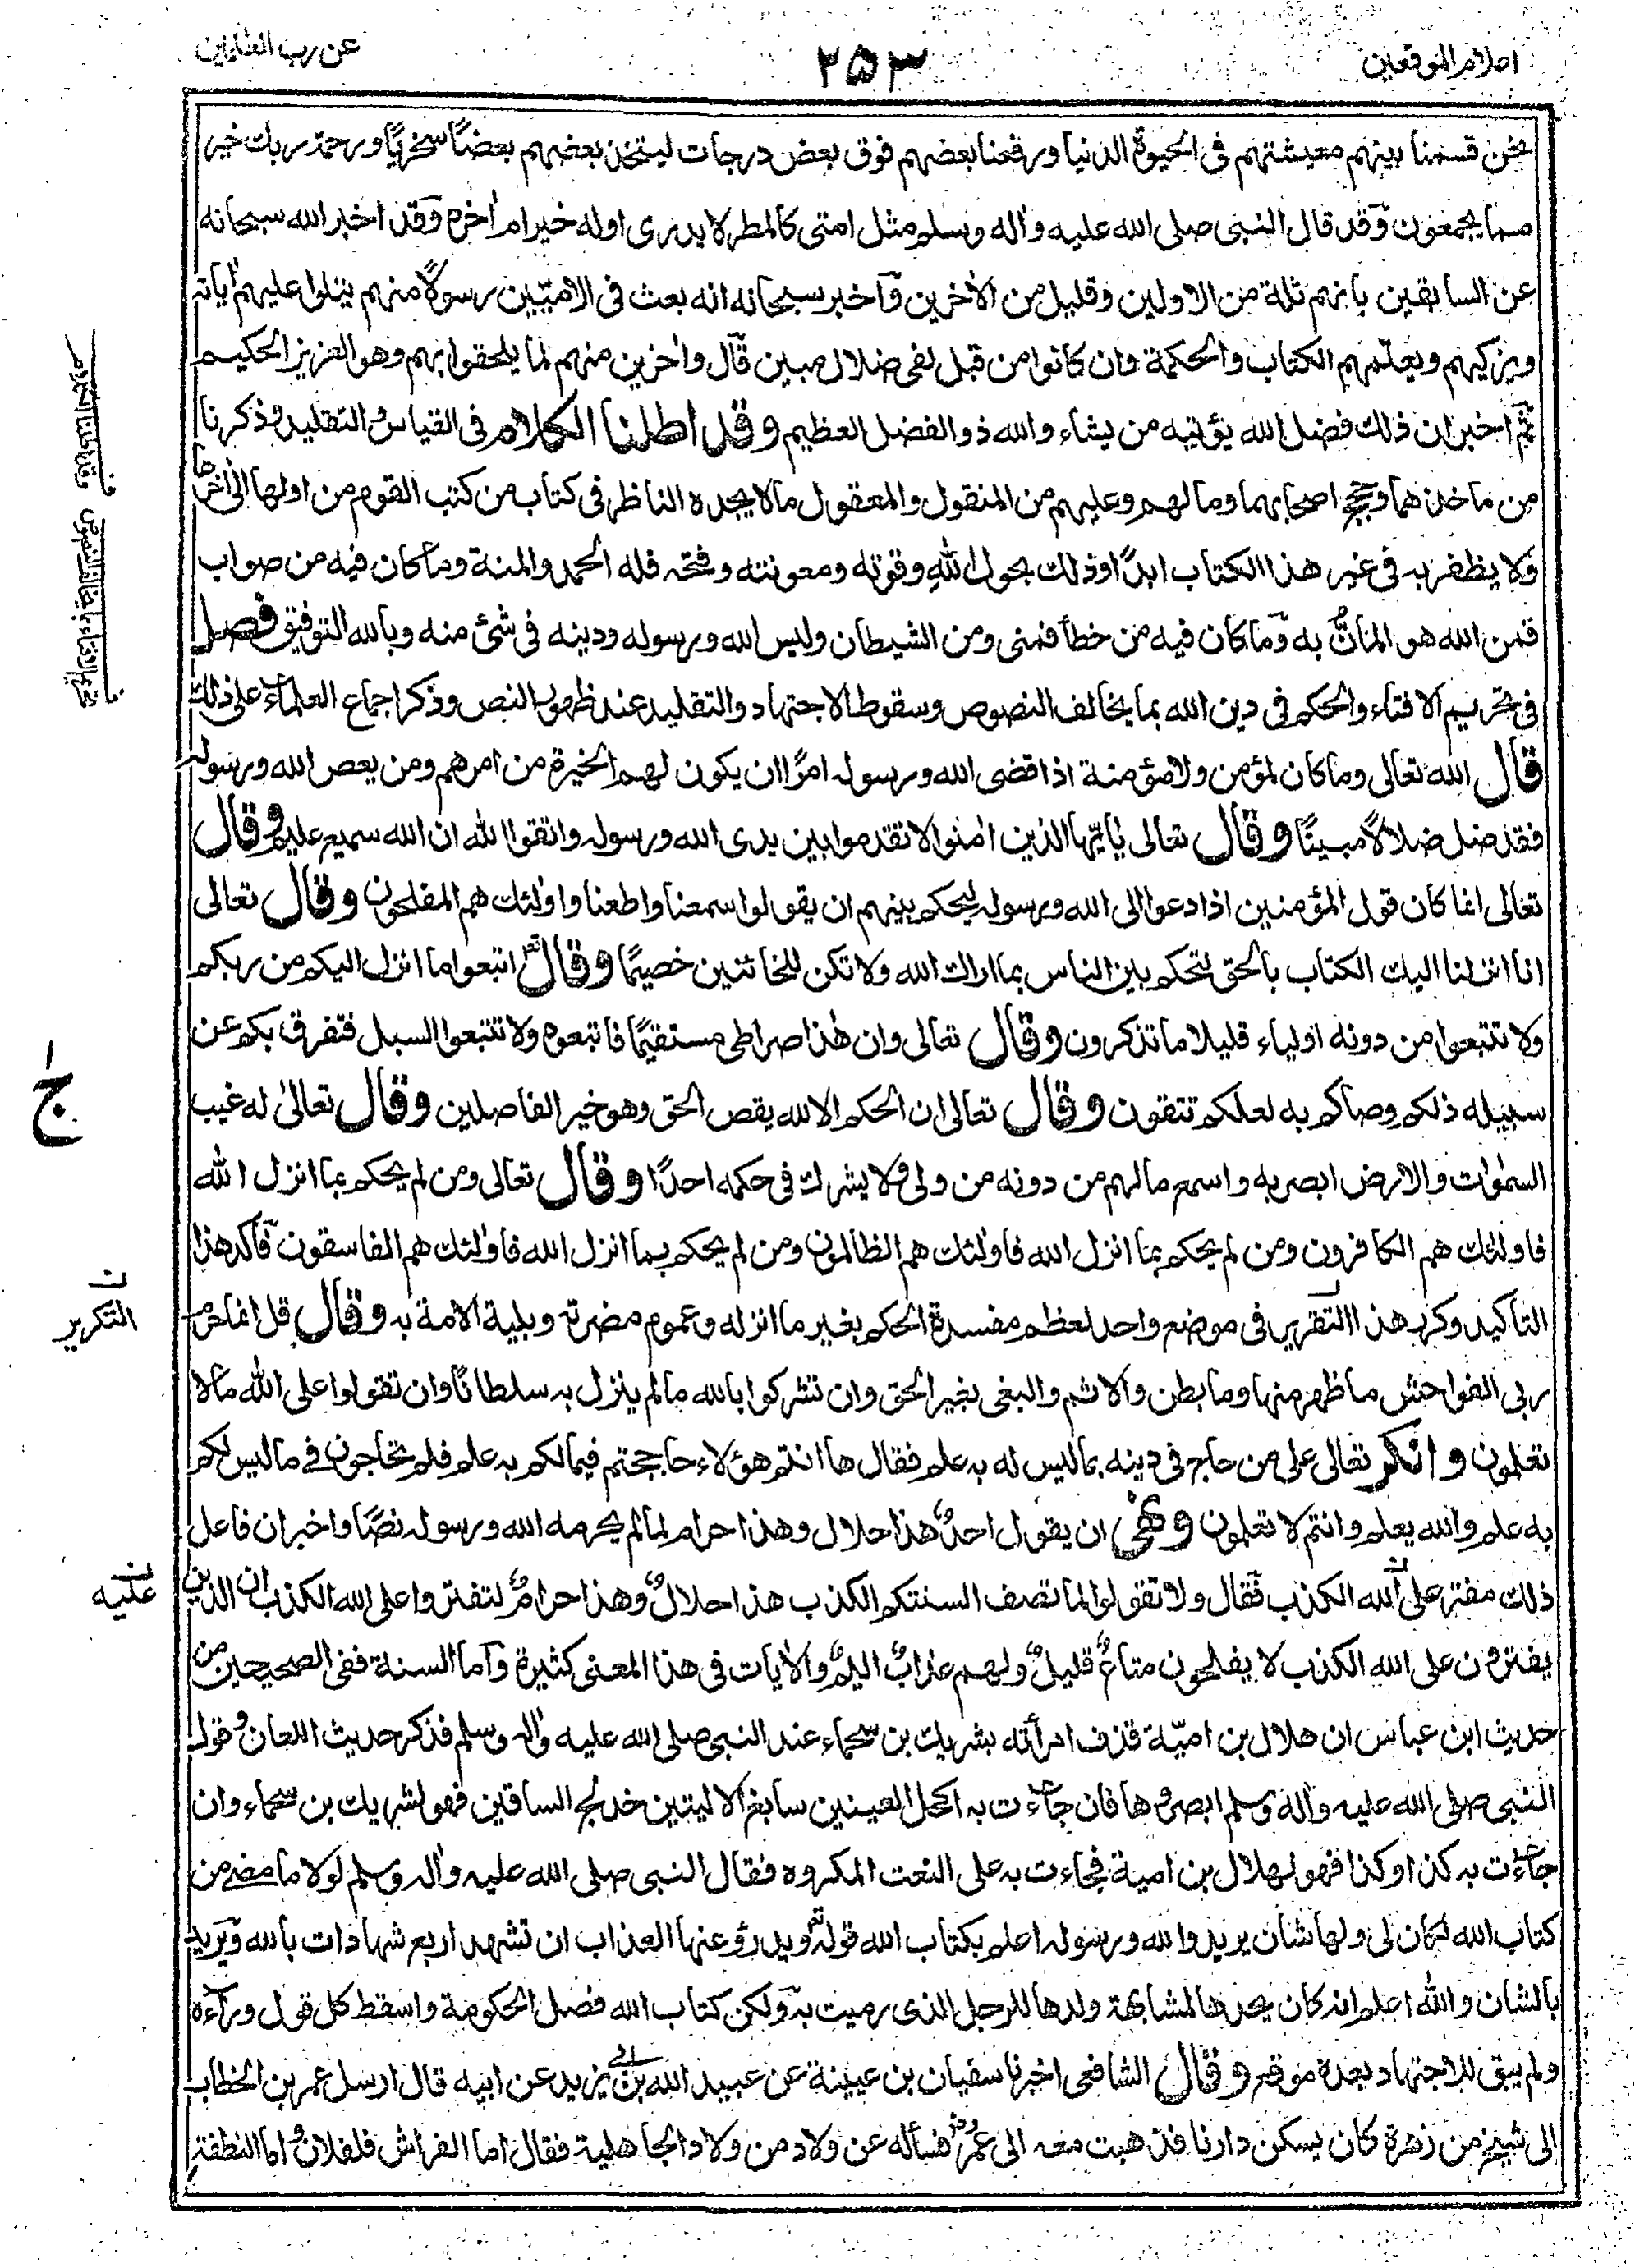 اعلام الموقعين
٢٥٣
عن رب العلمين
نحن قسمنا بينهم معيشتهم فى الحيوة الدنيا ورفعنا بعضهم فوق بعض درجات ليتخذ بعضهم بعضًا سخريًا ورحمة ربك خير
مما يجمعون وقد قال النبى صلى الله عليه واله وسلم مثل امتى كالمطر لا يدرى اوله خير ام اخره وقد اخبر الله سبحانه
عن السابقين بانهم ثلة من الاولين وقليل من الاخرين وآخبر سبحانه انه بعث فى الاميّين رسولًا منهم يتلوا عليهم اياته
ويزكيهم ويعلّمهم الكتاب والحكمة وان كانوا من قبل لفى ضلال مبين قآل واخرين منهم لما يلحقوا بهم وهو العزيز الحكيم
ثم اخبر ان ذلك فضل الله يؤتيه من يشاء والله ذو الفضل العظيم وقد اطلنا الكلام فى القياس والتقليد وذكرنا
من ماخذهما وحجج اصحابهما وما لهم وعليهم من المنقول والمعقول مالا يجده الناظر فى كتاب من كتب القوم من اولها الى اخرها
ولا يظفر به فى غير هذا الكتاب ابدًا وذلك بحول الله وقوته ومعونته وفتحه فله الحمد والمنة وما كان فيه من صواب
فمن الله هو المانّ به وما كان فيه من خطأ فمنى ومن الشيطان وليس الله ورسوله ودينه فى شئ منه وبالله التوفيق فصل
فى تحريم الافتاء والحكم فى دين الله بما يخالف النصوص وسقوط الاجتهاد والتقليد عند ظهور النص وذكر اجماع العلماء على ذلك
قال الله تعالى وما كان لمؤمن ولا مؤمنة اذا قضى الله ورسوله امرًا ان يكون لهم الخيرة من امرهم ومن يعص الله ورسوله
فقد ضل ضلالًا مبينًا وقال تعالى يايّها الذين امنوا لا تقدموا بين يدى الله ورسوله واتقوا الله ان الله سميع عليم وقال
تعالى انما كان قول المؤمنين اذا دعوا الى الله ورسوله ليحكم بينهم ان يقولوا سمعنا واطعنا واولئك هم المفلحون وقال تعالى
انا انزلنا اليك الكتاب بالحق لتحكم بين الناس بما اراك الله ولا تكن للخائنين خصيمًا وقال اتبعوا ما انزل اليكم من ربكم
ولا تتبعوا من دونه اولياء قليلا ما تذكرون وقال تعالى وان هذا صراطى مستقيمًا فاتبعوه ولا تتبعوا السبل فتفرق بكم عن
سبيله ذلكم وصاكم به لعلكم تتقون وقال تعالى ان الحكم الا لله يقص الحق وهو خير الفاصلين وقال تعالى له غيب
السموات والارض ابصر به واسمع ما لهم من دونه من ولى ولا يشرك فى حكمه احدًا وقال تعالى ومن لم يحكم بما انزل الله
فاولئك هم الكافرون ومن لم يحكم بما انزل الله فاولئك هم الظالمون ومن لم يحكم بما انزل الله فاولئك هم الفاسقون فآكد هذا
التاكيد وكرر هذا التقرير فى موضع واحد لعظم مفسدة الحكم بغير ما انزله وعموم مضرته وبلية الامة به وقال قل انما حرم
ربى الفواحش ما ظهر منها وما بطن والاثم والبغى بغير الحق وان تشركوا بالله ما لم ينزل به سلطانًا وان تقولوا على الله مالا
تعلمون وانكر تعالى على من حاج فى دينه بما ليس له به علم فقال ها انتم هؤلاء حاججتم فيما لكم به علم فلم تحاجون فى ما ليس لكم
به علم والله يعلم وانتم لا تعلمون ونهى ان يقول احدٌ هذا حلال وهذا حرام لما لم يحرمه الله ورسوله نصًا واخبر ان فاعل
ذلك مفتر على الله الكذب فقال ولا تقولوا لما تصف السنتكم الكذب هذا حلالٌ وهذا حرامٌ لتفتروا على الله الكذب ان الذين
يفترون على الله الكذب لا يفلحون متاعٌ قليلٌ ولهم عذابٌ اليمٌ والايات فى هذا المعنى كثيرة وآما السنة ففى الصحيحين من
حديث ابن عباس ان هلال بن اميّة قذف امرأته بشريك بن سحماء عند النبى صلى الله عليه واله وسلم فذكر حديث اللعان وقول
النبى صلى الله عليه واله وسلم ابصروها فان جاءت به اكحل العينين سابغ الاليتين خدلج الساقين فهو لشريك بن سحماء وان
جاءت به كذا وكذا فهو لهلال بن امية فجاءت به على النعت المكروه فقال النبى صلى الله عليه واله وسلم لولا ما مضى من
كتاب الله لكان لى ولها شان يريد والله ورسوله اعلم بكتاب الله قوله ويدرؤ عنها العذاب ان تشهد اربع شهادات بالله ويريد
بالشان والله اعلم انه كان يحدها لمشابهة ولدها للرجل الذى رميت به ولكن كتاب الله فصل الحكومة واسقط كل قول ورآءه
ولم يبق للاجتهاد بعده موقع وقال الشافعى اخبرنا سفيان بن عيينة عن عبيد الله بن ابى يزيد عن ابيه قال ارسل عمر بن الخطاب
الى شيخ من زهرة كان يسكن دارنا فذهبت معه الى عمر فسأله عن ولاد من ولاد الجاهلية فقال اما الفراش فلفلان واما النطفة
ج
ن
التكرير
ن
عليه